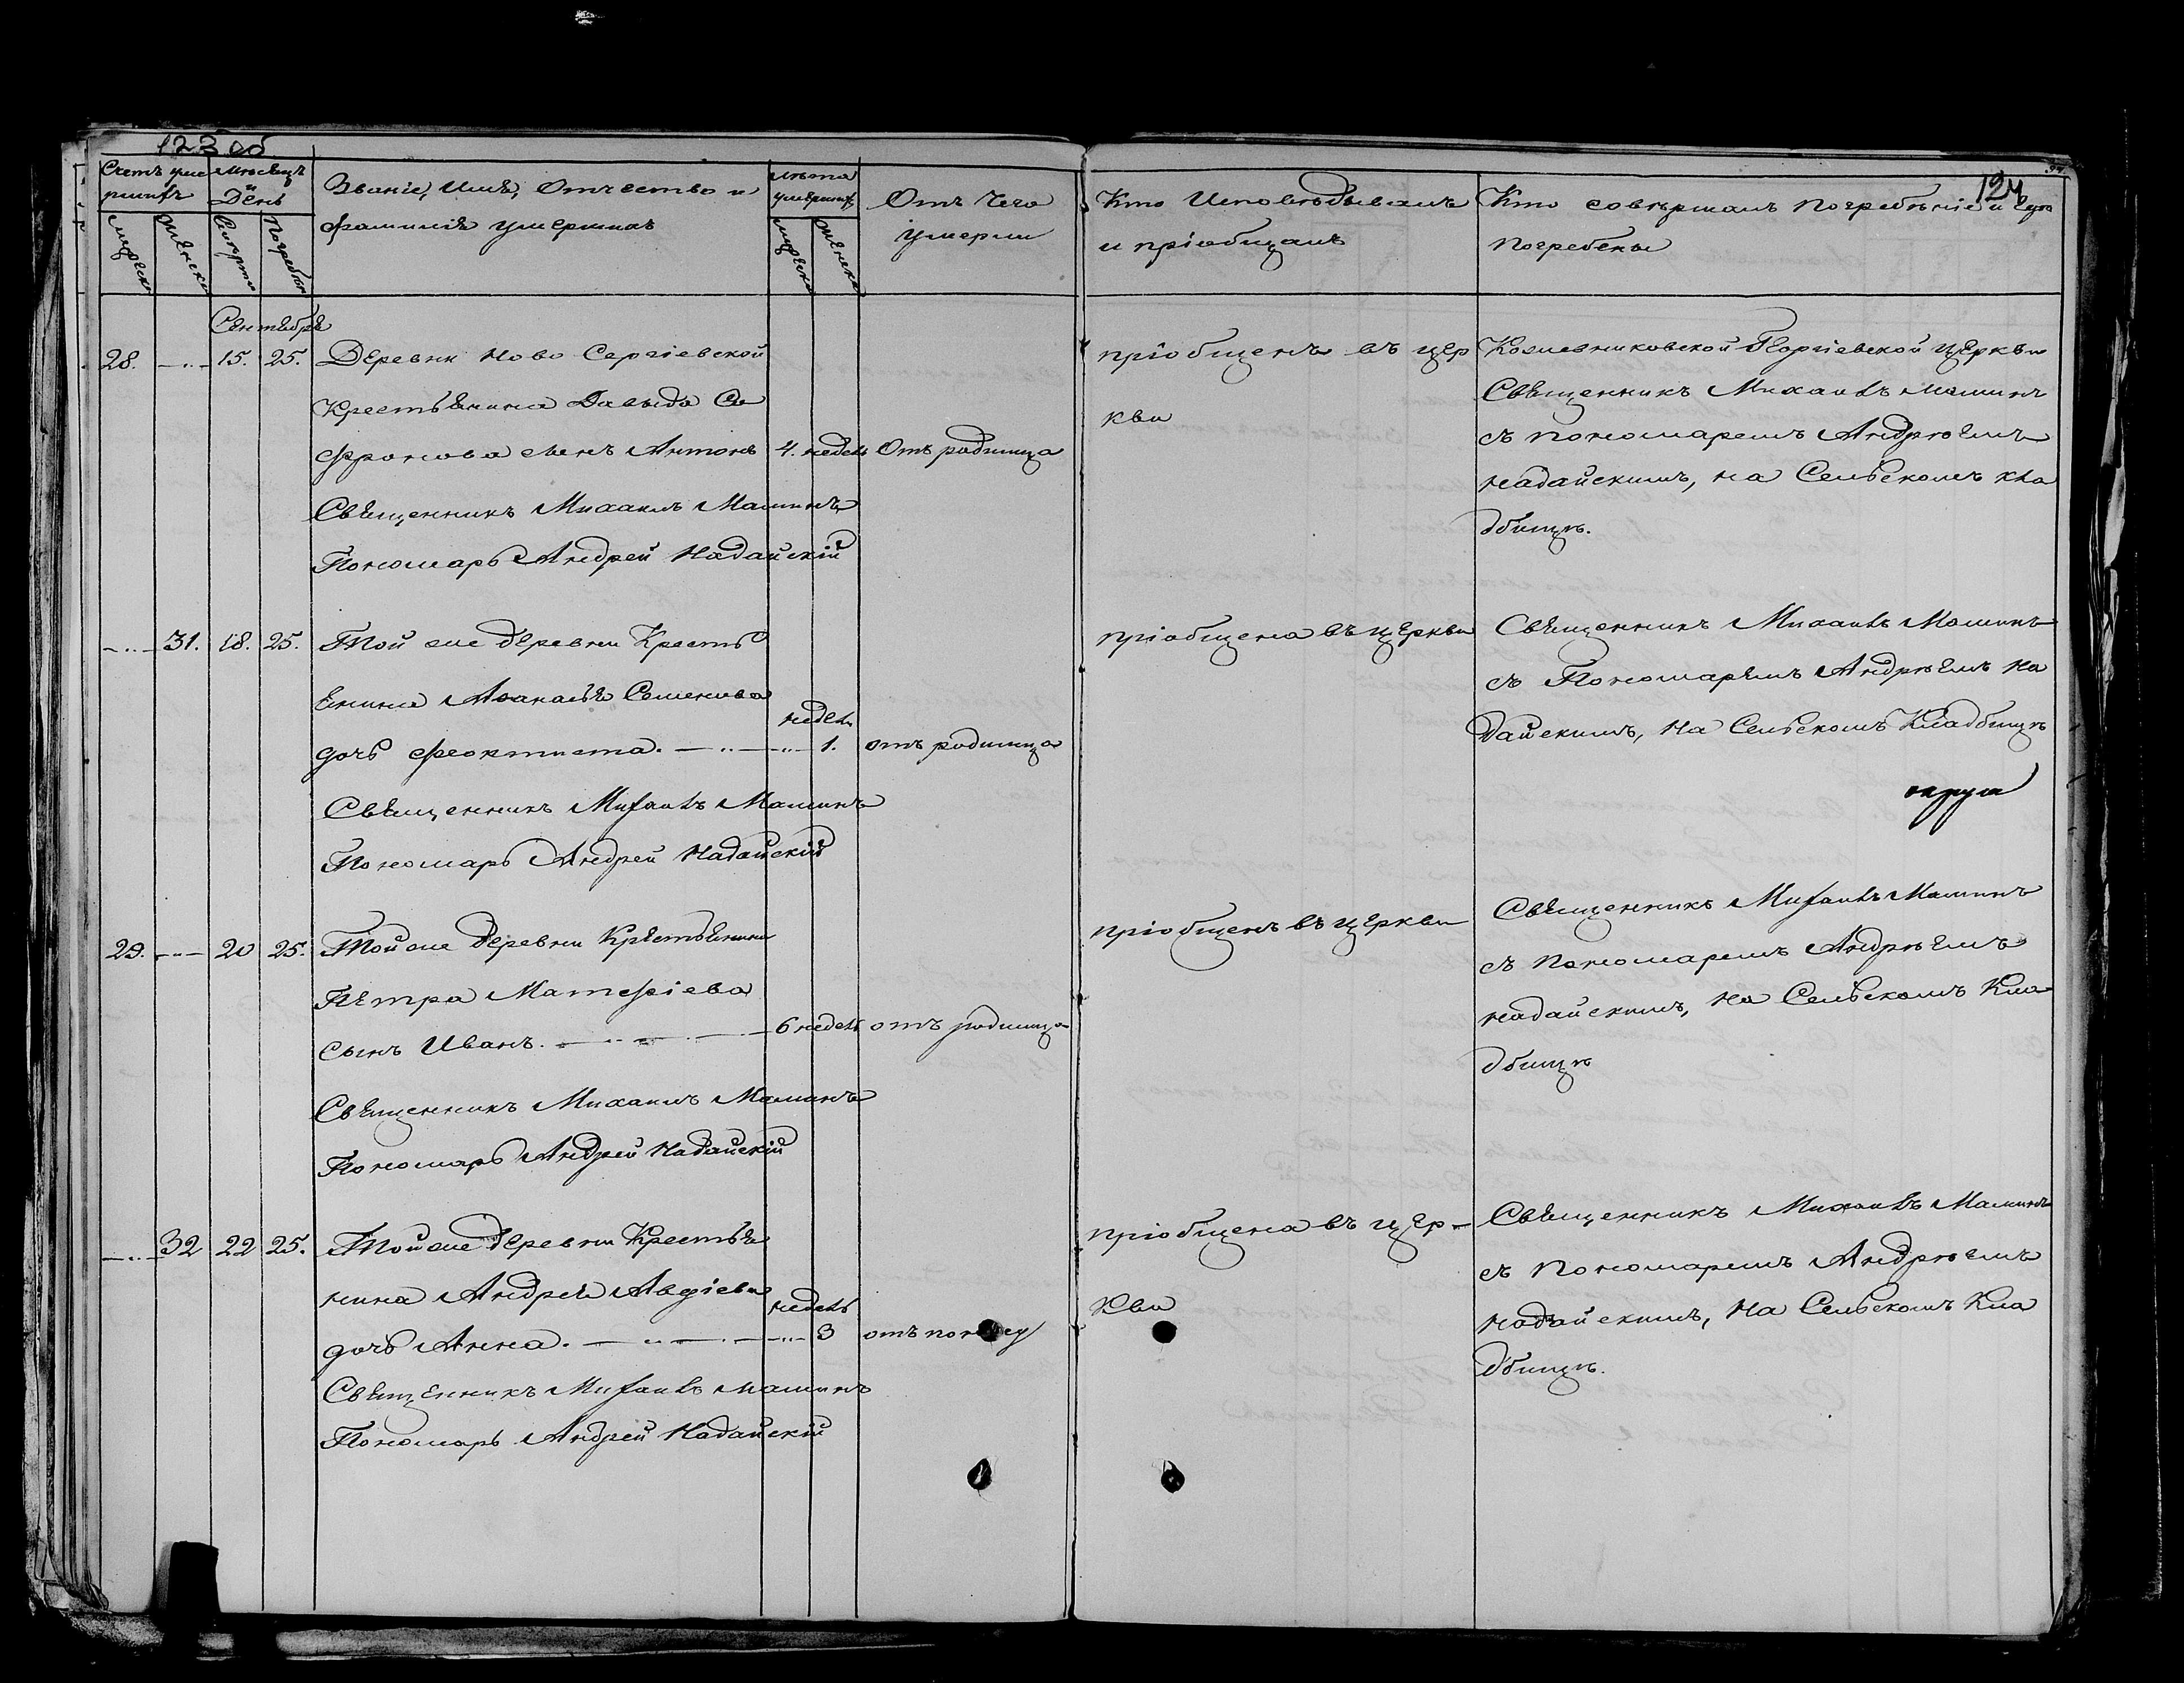 123 об
124
Счетъ уме
ршихъ
Мѣсецъ
и
День
Званіе, Имя, Отчество и
фамилія умершихъ
Лѣта
умершихъ
Отъ чего
умерли
Кто Исповѣдывалъ
и пріобщалъ
Кто совершалъ погребѣніе и гдѣ
погребены
Сентября
28. 15. 25. Деревни Ново Сергіевской
Крестьянина Давыда Со
фронова сынъ Антонъ 4. недель Отъ родимца
Священникъ Михаилъ Машинъ
Пономарь Андрей Надайскій
пріобщенъ въ цер
кви
Кожевниковской Георгіевской церкви
Священникъ Михаилъ Машинъ
съ пономаремъ Андрѣемъ
надайскимъ, на Сельскомъ кла
дбищѣ.
31. 18. 25. Той же деревни Кресть
янина Афанасья Семенова
недель
дочь Феоктиста. 1. отъ родимца
Священникъ Михаилъ Машинъ
Пономарь Андрей Надайскій
пріобщена въ церкви
Священникъ Михаилъ Машинъ
съ Пономаремъ Андрѣемъ На
дайскимъ, на Сельскомъ Кладбищѣ
29. 20 25. Той же деревни Крестьянина
Петра Матефіева
сынъ Иванъ. 6 недель отъ родимца
Священникъ Михаилъ Машинъ
Пономарь Андрей Надайскій
пріобщенъ въ церкви
Священникъ Михаилъ Машинъ
съ пономаремъ Андрѣемъ
надайскимъ, на Сельскомъ Кла
дбищѣ
32 22 25. Той же деревни Крестья
нина Андрея Авдіева
недель
дочь Анна. 3 отъ
Священникъ Михаилъ Машинъ
Пономарь Андрей Надайскій
пріобщена въ цер-
кви
Священникъ Михаилъ Машинъ
съ пономаремъ Андрѣемъ
надайскимъ, на Сельскомъ Кла
дбищѣ.